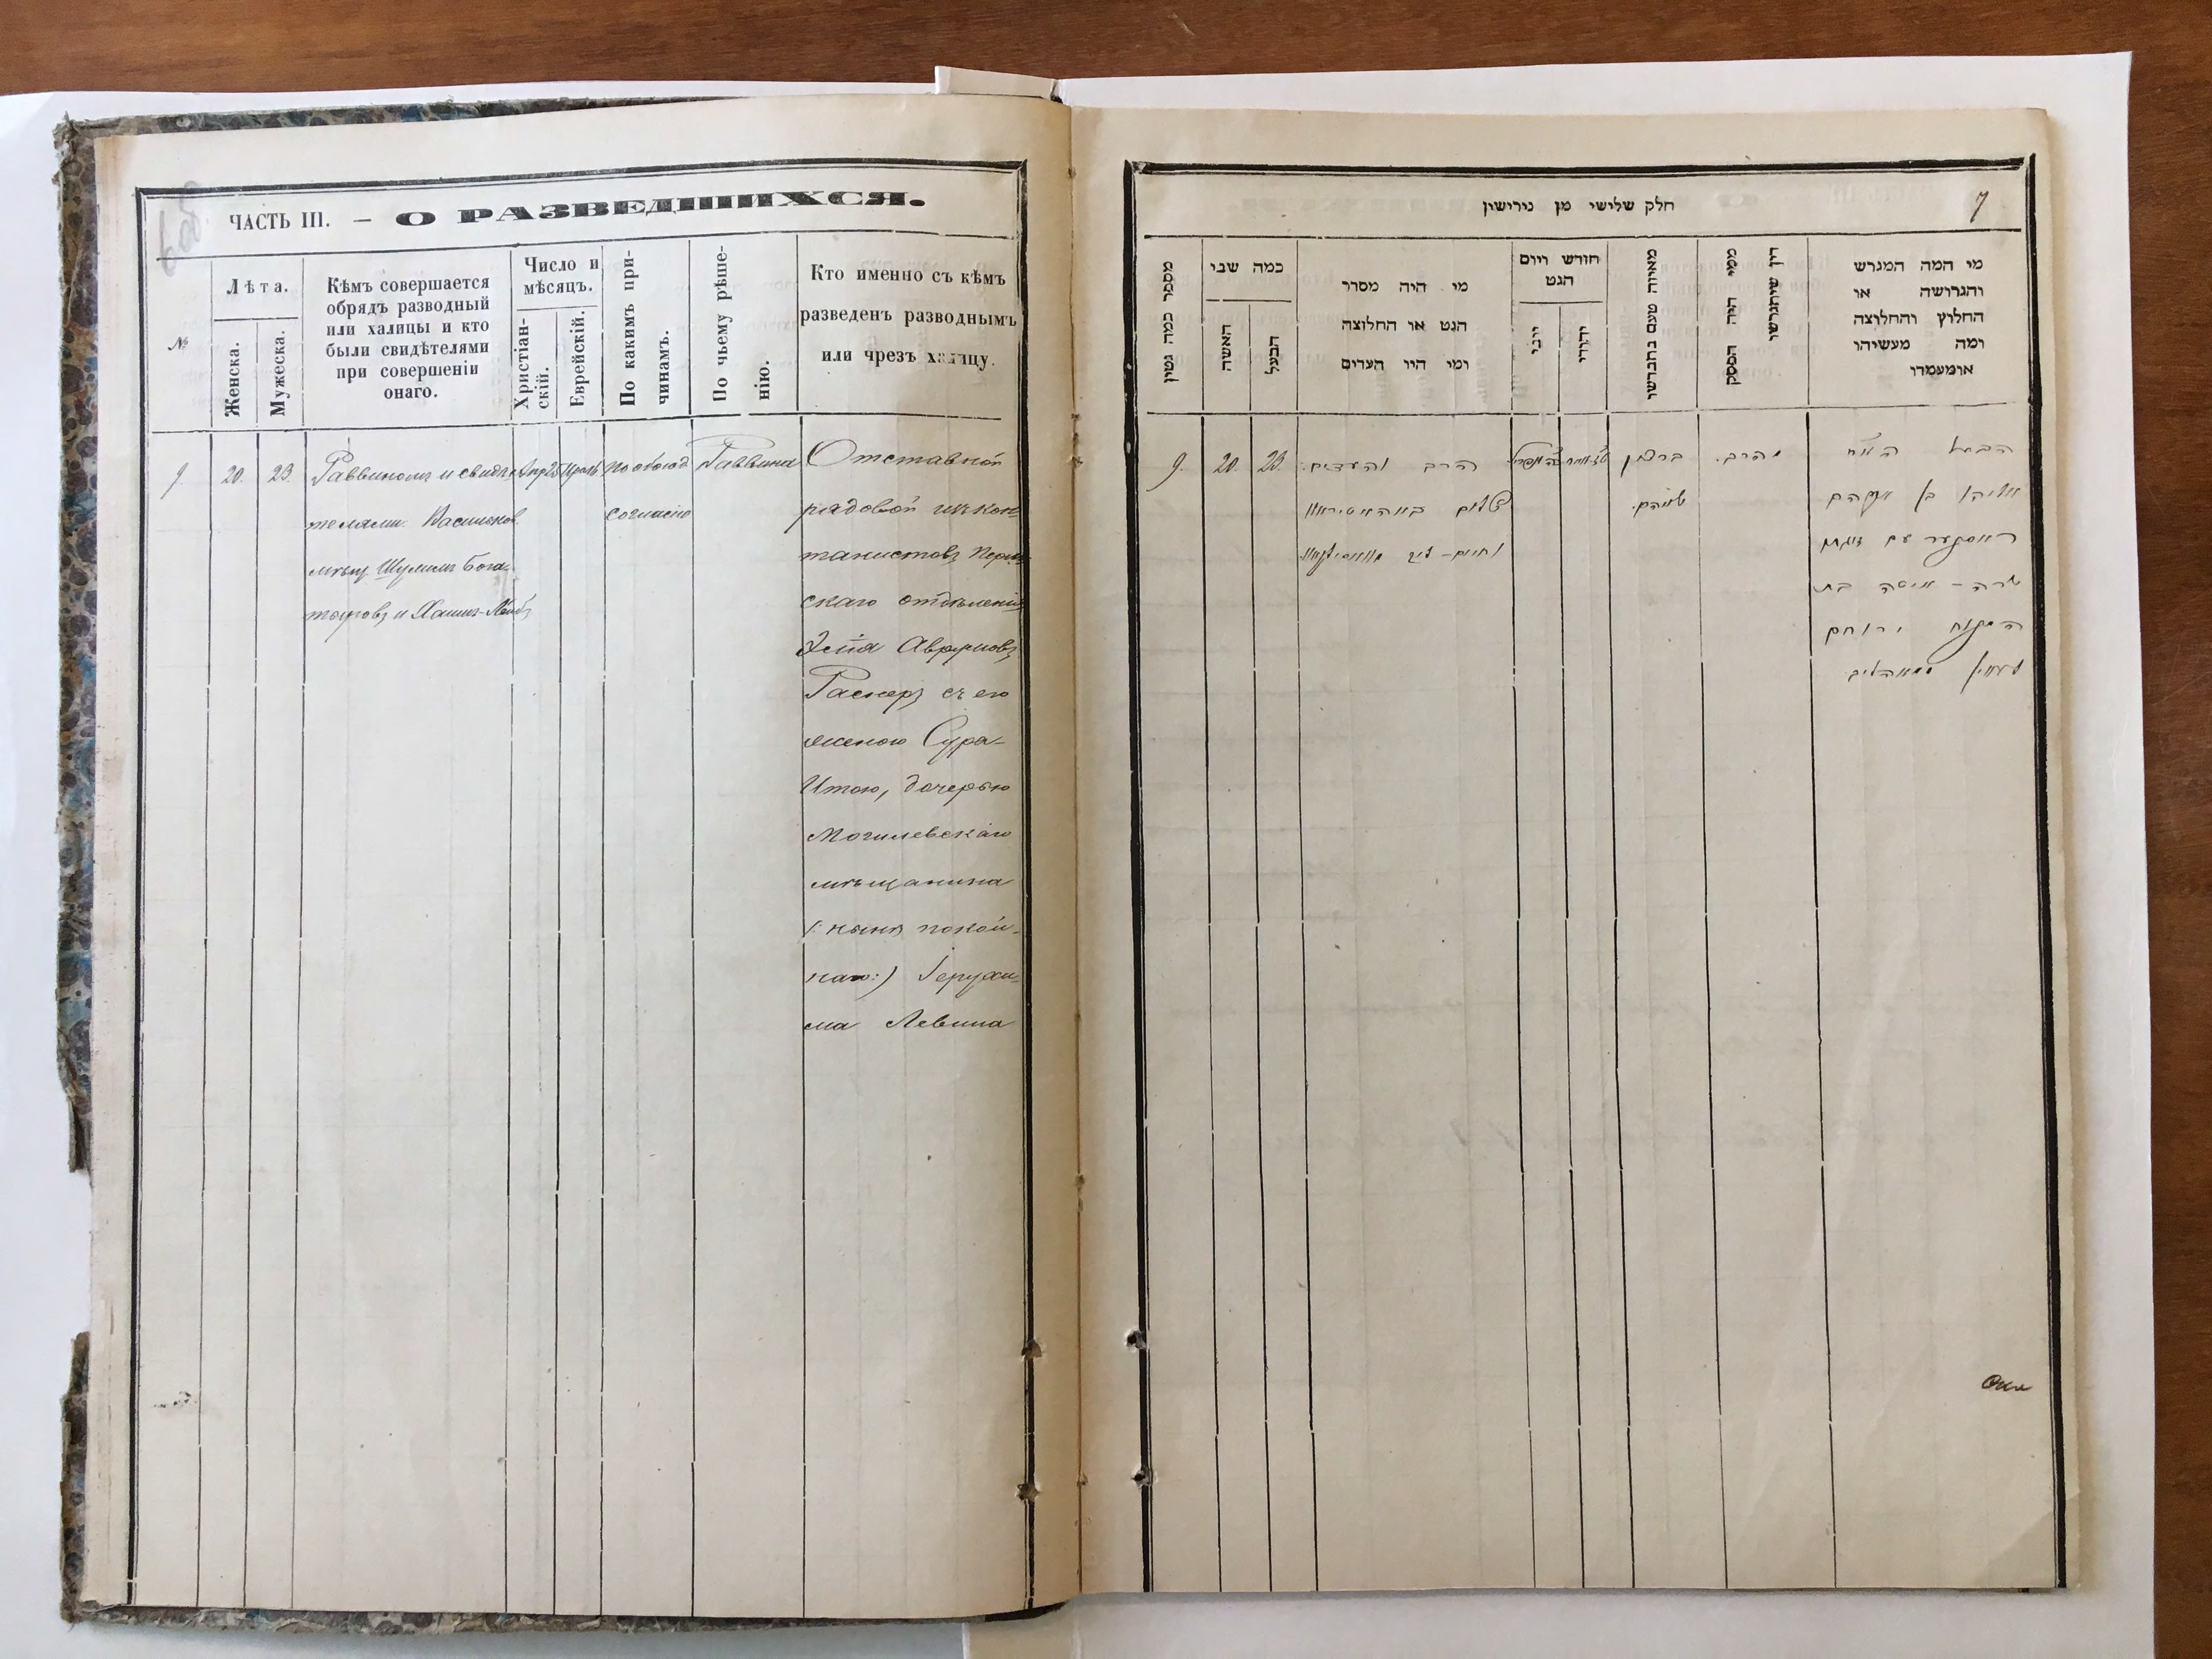 ЧАСТЬ III. — О РАЗВЕДШИХСЯ.
№
Лѣта.
Женска.
Мужеска.
Кѣмъ совершается
обрядъ разводный
или халицы и кто
были свидѣтелями
при совершеніи
онаго.
Число и
мѣсяцъ.
Христіан-
скій.
Еврейскій.
По какимъ при-
чинамъ.
По чьему рѣше-
нію.
Кто именно съ кѣмъ
разведенъ разводнымъ
или чрезъ халицу.
9.
20.
23.
Раввиномъ и свидѣ-
телями
Шулимъ Бога-
и Хаимъ-Лейб
По обоюд
согласію
Раввина
Отставной
рядовой изъ кан-
танистовъ Перм-
скаго отдѣленія
Элія Абрамовъ
Раскеръ съ его
женою Сура-
Итою, дочерью
Могилевскаго
мѣщанина
(: нынѣ покой-
наго:) Іерухи-
ма Левина
חלק שלישי מן גירושין
7
מספר כמה גטין
כמה שני
האשה
הבעל
מי היה מסדר
הגט או החלוצה
ומי היו העדים
חודש ויום
הגט
יוני
יהודי
מאיזה טעם נתגרשו
מפי איזה הפסק
דין שיתגרשו
מי המה המגרש
והגרושה או
החלוץ והחלוצה
ומה מעשיהו
אומעמדו
9.
20.
23.
הרב והעדים
שלום
וחיים-ליב
ברצון
שניהם.
הרב.
הבעל
אליהו בן אברהם
ראסקער עם זוגתו
שרה - איטה בת
המנוח ירוחם
לעווין